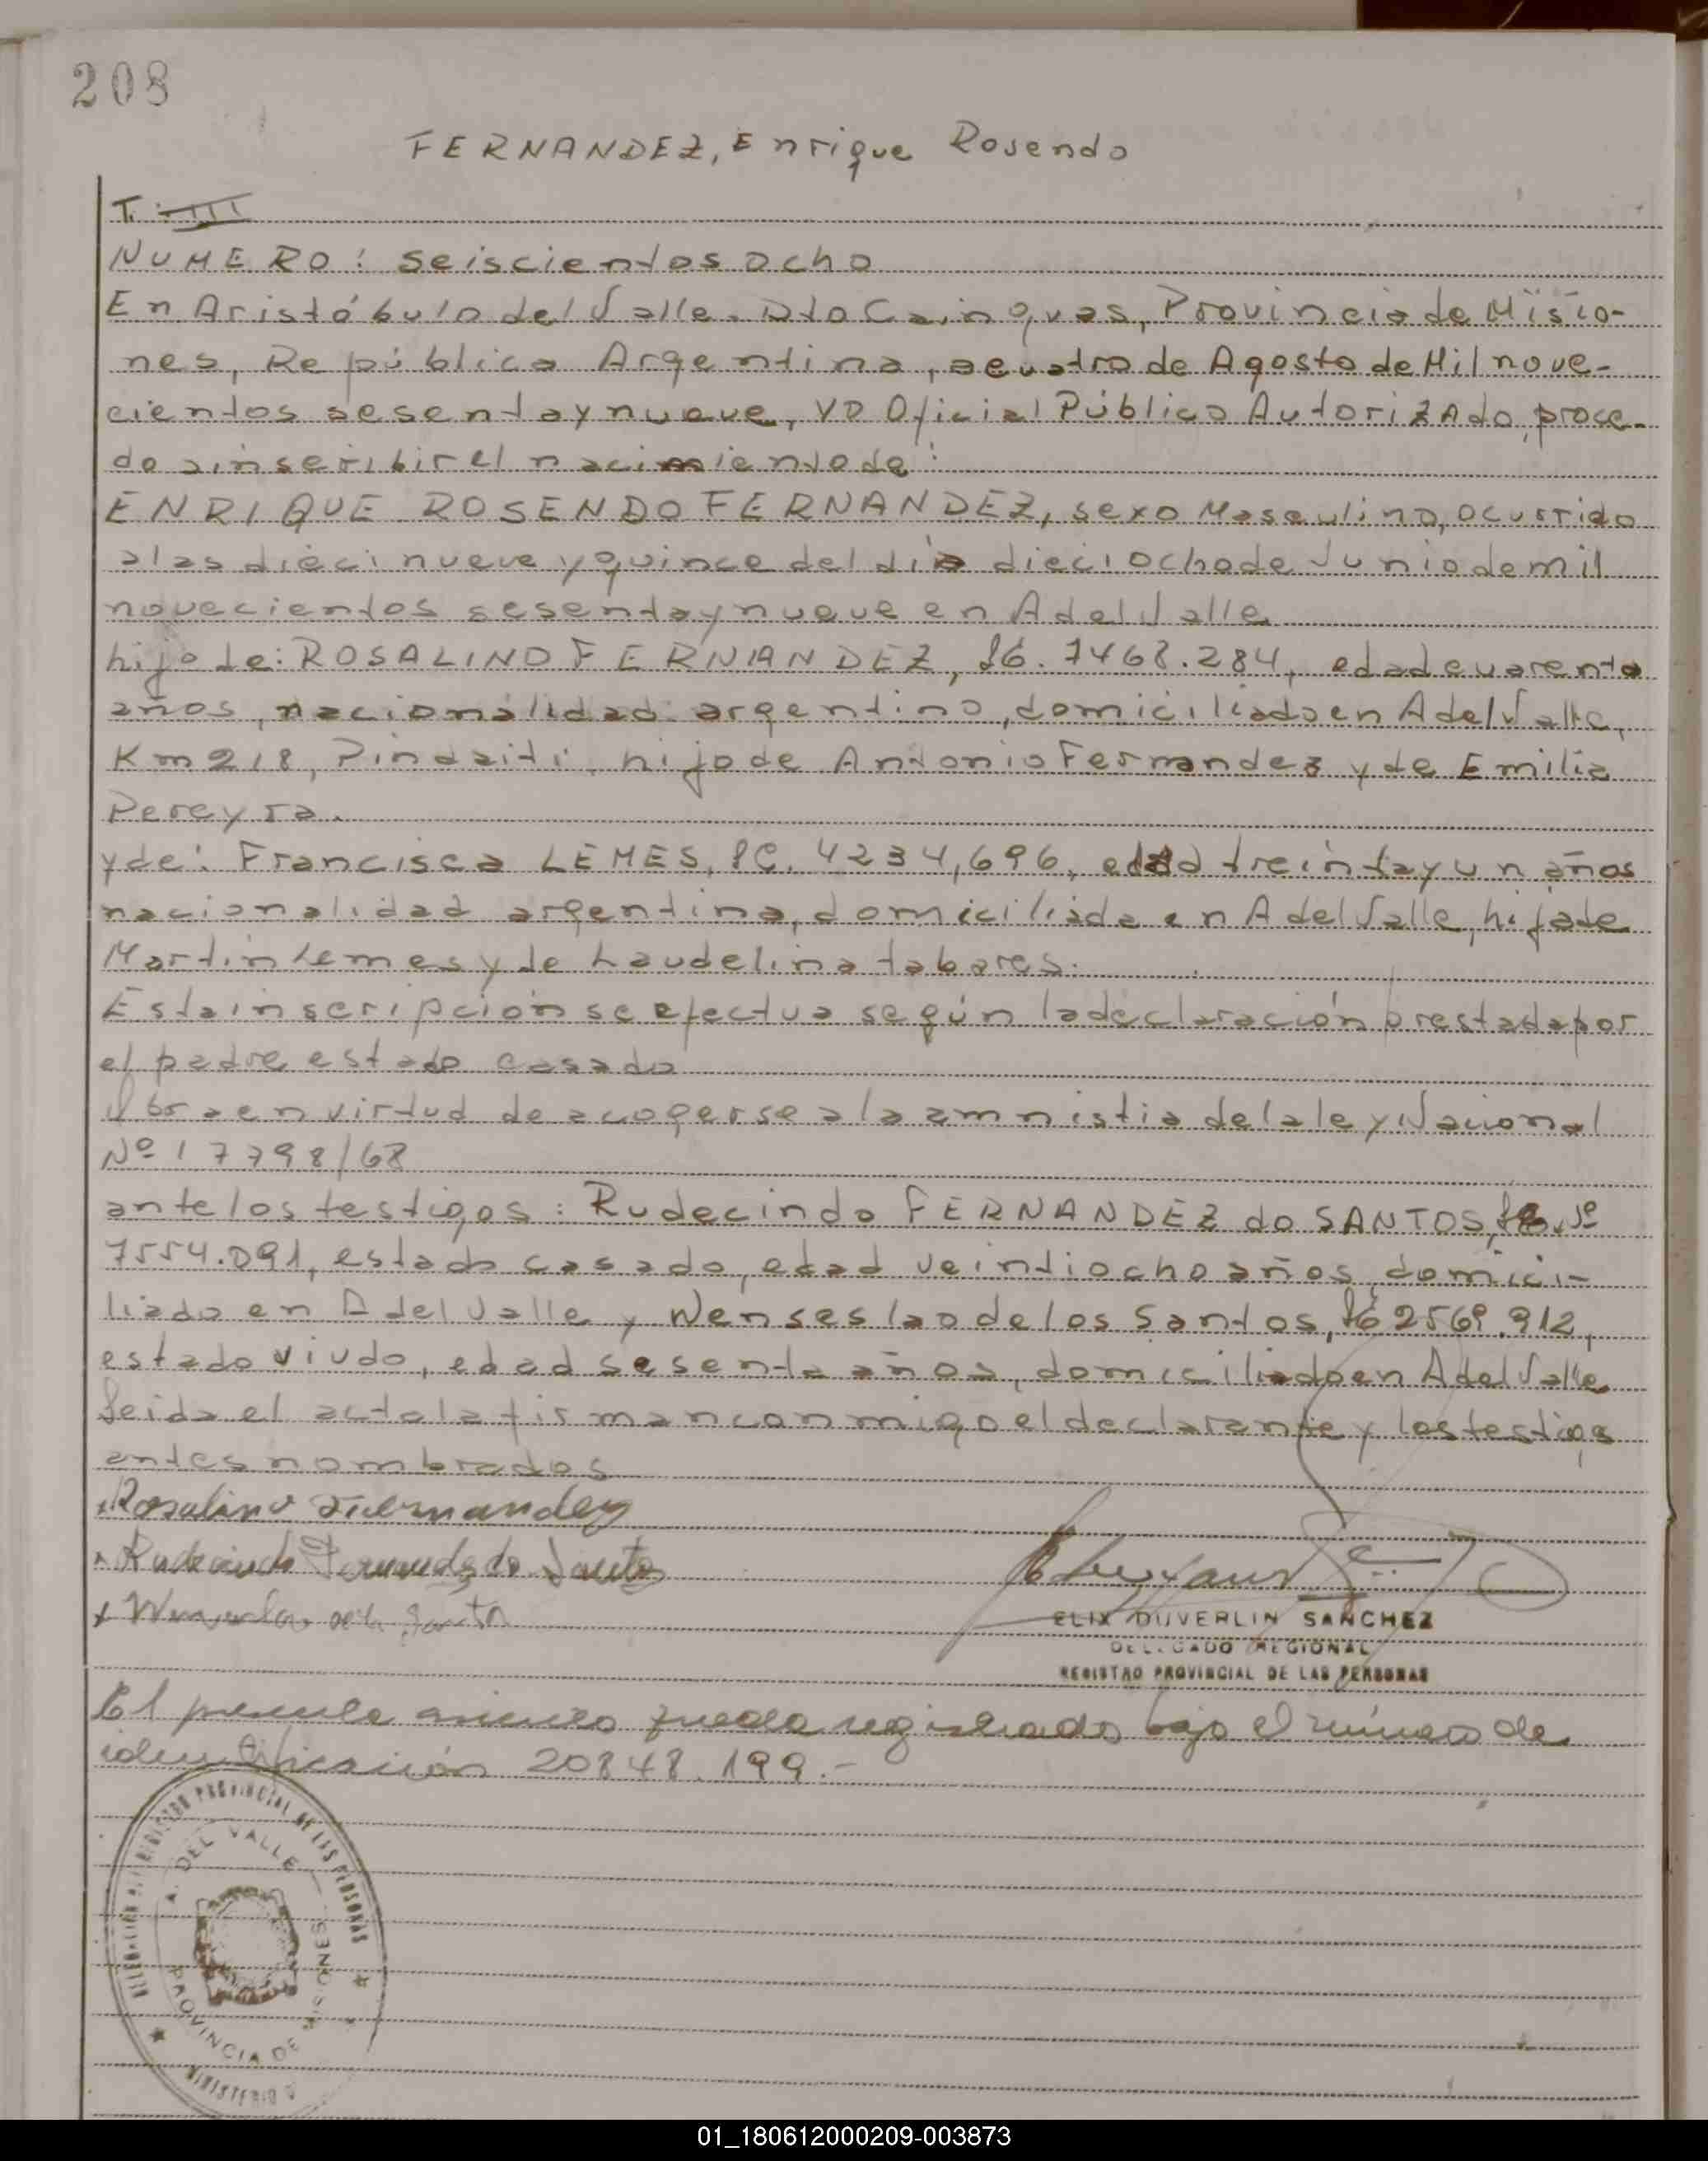 208
FERNANDEZ, Enrique Rosendo
T. III
NUMERO: seiscientos ocho
En Aristóbulo del Valle. Dto Cainguas, Provincia de Misio-
nes, República Argentina, a cuatro de Agosto de Mil nove-
cientos sesenta y nueve, YO Oficial Público Autorizado, proce-
do a inscribir el nacimiento de:
ENRIQUE ROSENDO FERNANDEZ, sexo Masculino, ocurrido
a las diecinueve y quince del día dieciocho de Junio de mil
novecientos sesenta y nueve en A del Valle
hijo de: ROSALINO FERNANDEZ, 7468.284, edad cuarenta
años, nacionalidad argentino, domiciliado en A del Valle,
Km 218, Pindaiti, hijo de Antonio Fernandez y de Emilia
Pereyra.
y de: Francisca LEMES, LC. 4234,696, edad treinta y un años
nacionalidad argentina, domiciliada en A del Valle, hija de
Martin Lemes y de Laudelina tabares.
Esta inscripción se efectua según la declaración prestada por
el padre estado casado
Obra en virtud de acogerse a la amnistia de la ley Nacional
Nº 17798/68
ante los testigos: Rudecindo FERNANDEZ do SANTOS, Nº
7554.091, estado casado, edad veintiocho años, domici-
liado en A del Valle y Wenseslao de los Santos, 2569.912,
estado viudo, edad sesenta años, domiciliado en A del Valle
Leida el acta la firman conmigo el declarante y los testigos
antes nombrados
Rosalino Fernandez
Rudecindo Fernandez do Santos
ELIX DUVERLIN SANCHEZ
DELEGADO REGIONAL
REGISTRO PROVINCIAL DE LAS PERSONAS
El presente asiento queda registrado bajo el número de
identificación 20848.199.-
REGISTRO PROVINCIAL DE LAS PERSONAS
A. DEL VALLE
PROVINCIA DE MISIONES
MINISTERIO
01_180612000209-003873